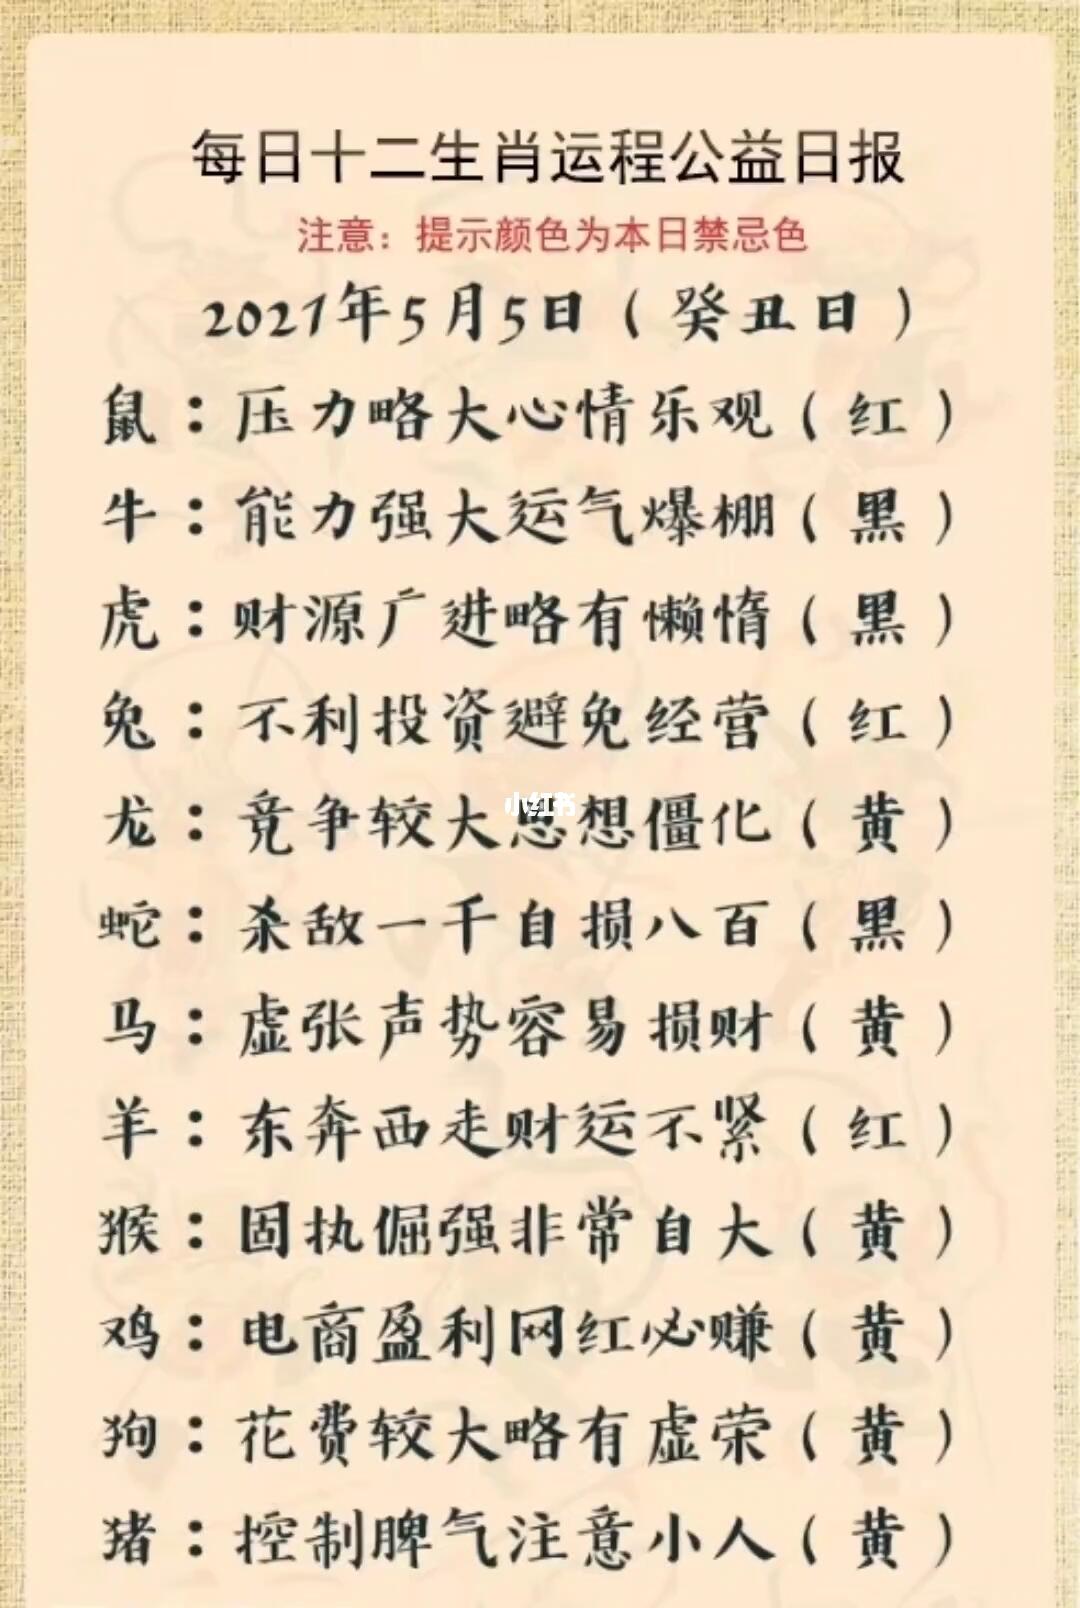 每日十二生肖运程公益日报
注意：提示颜色为本日禁忌色
2021年5月5日（癸丑日）
鼠：压力略大心情乐观（红）
牛：能力强大运气爆棚（黑）
虎：财源广进略有懒惰（黑）
兔：不利投资避免经营（红）
龙：竞争较大思想僵化（黄）
小红书
蛇：杀敌一千自损八百（黑）
马：虚张声势容易损财（黄）
羊：东奔西走财运不紧（红）
猴：固执倔强非常自大（黄）
鸡：电商盈利网红必赚（黄）
狗：花费较大略有虚荣（黄）
猪：控制脾气注意小人（黄）